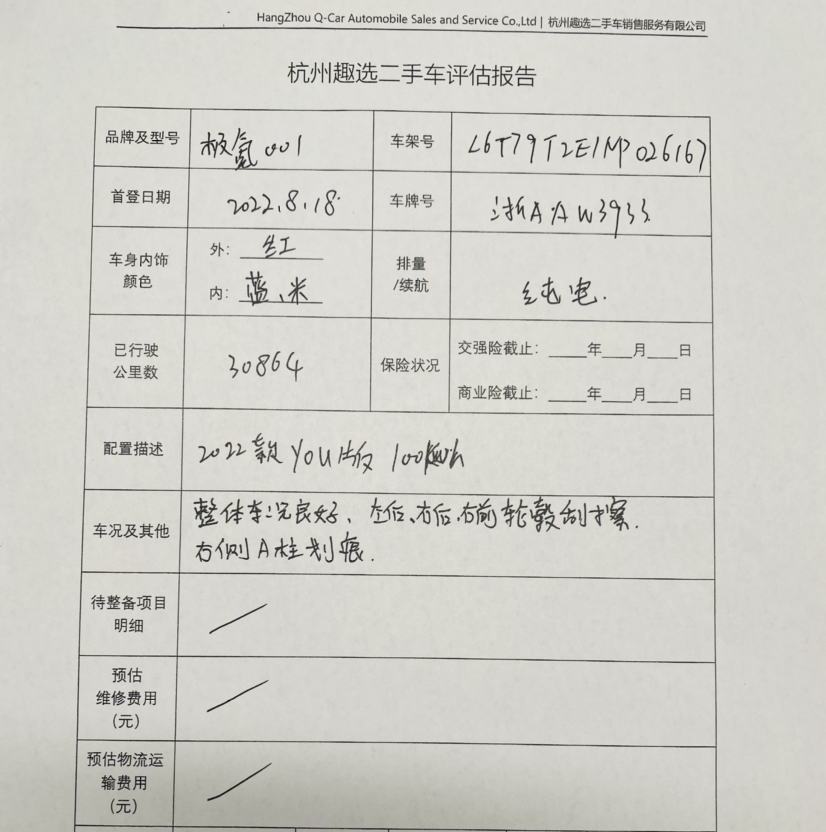 HangZhou Q-Car Automobile Sales and Service Co.,Ltd | 杭州趣选二手车销售服务有限公司
杭州趣选二手车评估报告
品牌及型号 极氪001 车架号 L6T79T2E1MP026167
首登日期 2022.8.18. 车牌号 浙AAW3933
车身内饰颜色 外: 红 排量/续航 纯电.
内: 蓝、米
已行驶公里数 30864 保险状况 交强险截止: ____年___月___日
商业险截止: ____年___月___日
配置描述 2022款 YOU版 100kwh
车况及其他 整体车况良好、左后、右后、右前轮毂刮擦.
右侧A柱划痕.
待整备项目
明细
预估
维修费用
(元)
预估物流运
输费用
(元)